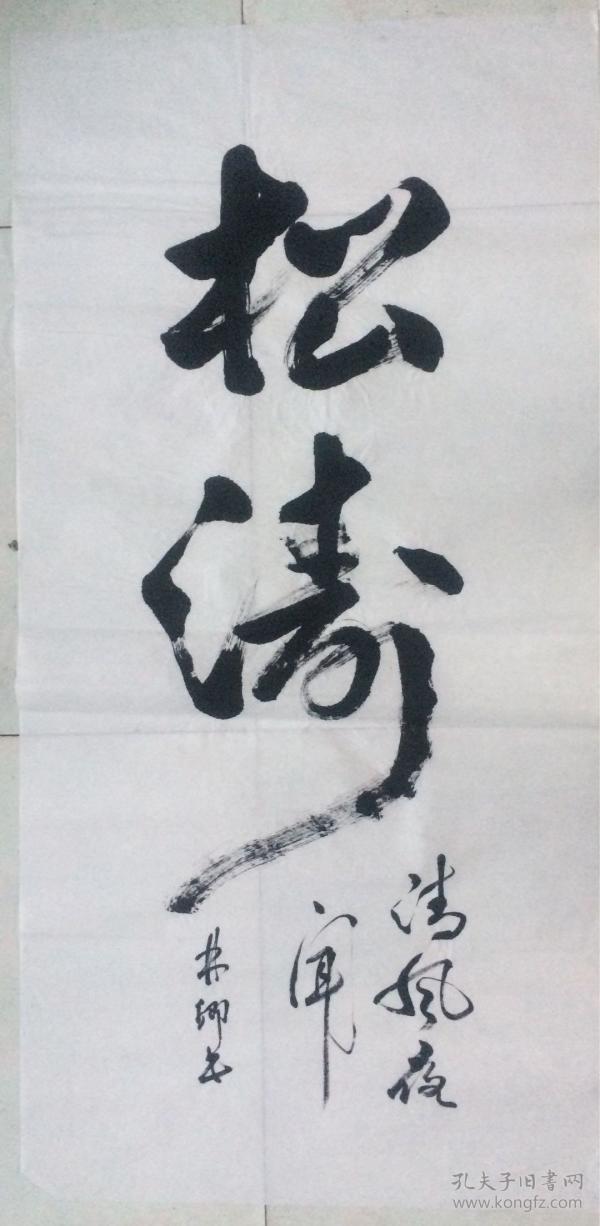 松涛
清风夜
闻
林
孔夫子旧書网
www.kongfz.com